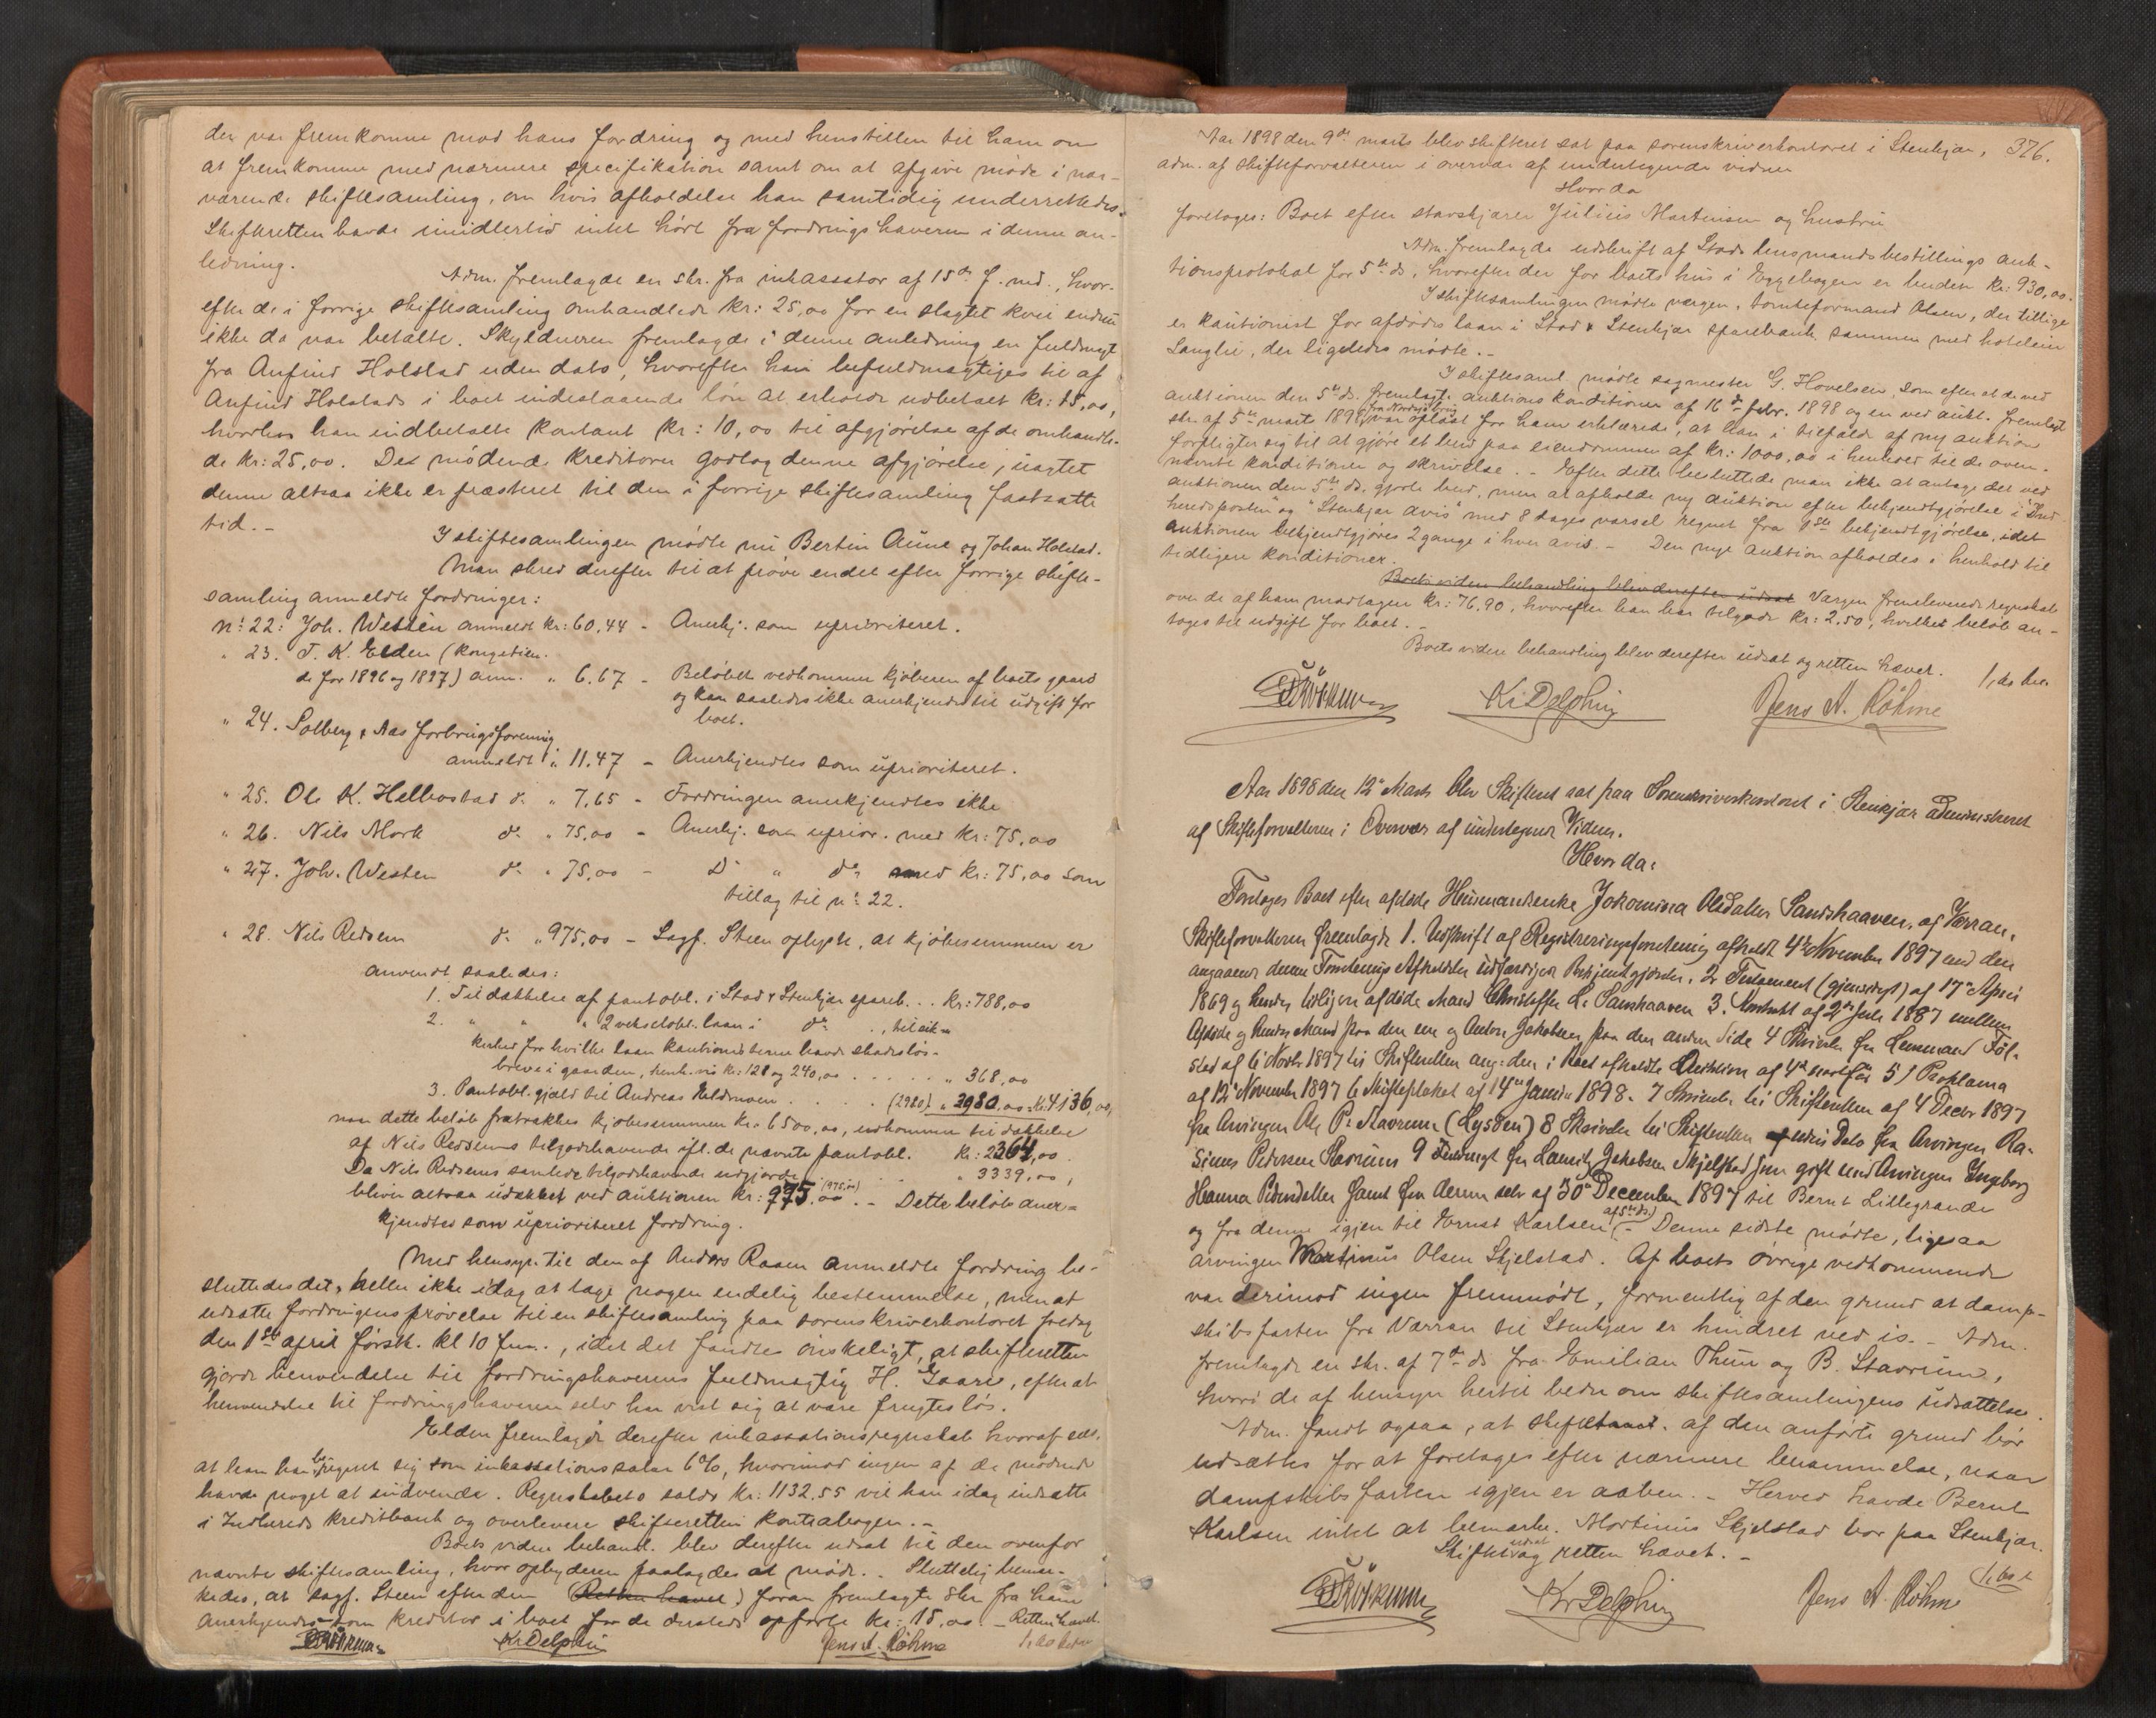 der var fremkomne mod hans fordring og med henstillen til ham om
at fremkomme med nærmere specifikation samt om at afgive møde i nær-
værende skiftesamling, om hvis afholdelse han samtidig underrettedes.
Skifteretten havde imidlertid intet hørt fra fordringshaveren i denne an-
ledning.
Adm. fremlagde en skr. fra inkassator af 15de f. md., hvor-
efter de i forrige skiftesamling omhandlede kr: 25,00 for en slagtet kvie endnu
ikke da var betalte. Skyldneren fremlagde i denne anledning en fuldmagt
fra Anfind Holstad uden dato, hvorefter han befuldmægtiges til af
Anfind Holstads i boet indestaaende løn at erholde udbetalt kr: 15,00,
hvorhos han indbetalte kontant kr: 10,00 til afgjørelse af de omhandle-
de kr: 25,00. De mødende kreditorer godtog denne afgjørelse, uagtet
denne altsaa ikke er præsteret til den i forrige skiftesamling fastsatte
tid. -
I skiftesamlingen mødte nu Bertin Aune og Johan Holstad.
Man skred derefter til at prøve endel efter forrige skifte-
samling anmeldte fordringer:
No: 22: Joh. Westen anmeldt kr: 60,44 - Anerkj. som uprioriteret.
" 23. T. K. Elden (kongetien-
de for 1896 og 1897) anm. " 6.67 - Beløbet vedkommer kjøberen af boets gaard
og kan saaledes ikke anerkjendes til udgift for
boet.
" 24. Solberg & Aas forbrugsforening
anmeldt " 11.47 - Anerkjendtes som uprioriteret.
" 25. Ole K. Helbostad do " 7,65 - Fordringen anerkjendtes ikke
" 26. Nils Mork do " 75,00 - Anerkj. som uprior. med kr: 75,00
" 27. Joh. Westen do " 75,00 - Do " do med kr: 75,00 som
tillæg til no 22.
" 28. Nils Redsem do " 975,00 - Sagf. Steen oplyste, at kjøbesummen er
anvendt saaledes:
1. Til dækkelse af pantobl. i Stod & Stenkjær spareb. . . kr: 788,00
2. " " " 2 vekselobl. laan i do . ., til sik-
kerhed for hvilke laan kautionisterne havde skadesløs-
breve i gaarden, henh.vis kr: 128 og 240,00 . . . . " 368,00
3. Pantobl. gjæld til Andreas . . . . (2980) " 2980,00 kr: 4136,00,
naar dette beløb fratrækkes kjøbesummen kr: 6500,00, udkommer til dækkelse
af Nils Redsems tilgodehavende ifl. de nævnte pantobl. kr: 2364,00.
Da Nils Redsems samlede tilgodehavende udgjorde . . " 3339,00,
bliver altsaa udækket ved auktionen kr: 975,00 (975,00). - Dette beløb aner-
kjendtes som uprioriteret fordring.
Med hensyn til den af Anders Raaen anmeldte fordring be-
sluttedes det, heller ikke idag at tage nogen endelig bestemmelse, men at
udsætte fordringens prøvelse til en skiftesamling paa sorenskriverkontoret fredag
den 1ste april førstk. kl 10 fm., idet det fandtes ønskeligt, at skifteretten
gjorde henvendelse til fordringshaverens fuldmægtig H. Gaare, efterat
henvendelse til fordringshaveren selv har vist sig at være frugtesløs.
Elden fremlagde derefter inkassationsregnskab hvoraf sees,
at han har beregnet sig som inkassationssalær 6%, hvorimod ingen af de mødende
havde noget at indvende. Regnskabets saldo kr: 1132.55 vil han idag indsætte
i Indherreds kreditbank og overlevere skifteretten kontrabogen. -
Boets videre behandl. blev derefter udsat til den ovenfor
nævnte skiftesamling, hvor opbyderen paalagdes at møde. - Sluttelig bemær-
kedes, at sagf. Steen efter den (Retten hævet) foran fremlagte skr fra ham
anerkjendes som kreditor i boet for de deri opførte kr: 15,00. - Retten hævet.
Kr Delphin Jens A. Røhme
376.
Aar 1898 den 9de marts blev skifteret sat paa sorenskriverkontoret i Stenkjær,
adm. af skifteforvalteren i overvær af undertegnede vidner
Hvorda
foretoges: Boet efter stavskjærer Julius Martinsen og hustru
Adm. fremlagde udskrift af Stods lensmandsbestillings auk-
tionsprotokol for 5te ds, hvorefter der for boets hus i Eggebogen er buden kr: 930,00.
I skiftesamlingen mødte værgen, tomteformand Olsen, der tillige
er kautionist for afdødes laan i Stod & Stenkjær sparebank sammen med hoteleier
Langlie, der ligeledes mødte. -
I skiftesaml. mødte sagmester G. Hovelsen, som efter at de ved
auktionen den 5te ds. fremlagte auktions konditioner af 16de febr. 1898 og en ved aukt. fremlagt
skr. af 5te marts 1898 var oplæst for ham erklærede, at han i tilfælde af ny auktion
forpligter sig til at gjøre et bud paa eiendommen af kr: 1000,00 i henhold til de oven-
nævnte konditioner og skrivelse. - Efter dette besluttede man ikke at antage det ved
auktionen den 5te ds. gjorte bud, men at afholde ny auktion efter bekjendtgjørelse i "Ind-
herredsposten" og "Stenkjær avis" med 8 dages varsel regnet fra 1ste bekjendtgjørelse, idet
auktionen bekjendtgjøres 2 gange i hver avis. - Den nye auktion afholdes i henhold til
tidligere konditioner.
Boets videre behandling blev derefter udsat Værgen fremleverede regnskab
over de af ham modtagne kr: 76.90, hvorefter han har tilgode kr: 2.50, hvilket beløb an-
toges til udgift for boet. -
Boets videre behandling blev derefter udsat og retten hævet.
Kr Delphin Jens A. Røhme
Aar 1898 den 12te Marts blev Skifteret sat paa Sorenskriverkontoret i Stenkjær administreret
af Skifteforvalteren i Overvær af undertegnede Vidner.
Hvorda:
Foretoges Boet efter afdøde Husmandsenke Johomina Olsdatter Sandshaaven, af Værran.
Skifteforvalteren fremlagde 1. Udskrift af Registreringsforretning afholdt 4de November 1897 med den
angaaende denne Forretnings Afholdelse udfærdiget Bekjendtgjørelse. 2. Testament (gjensidigt) af 17de April
1869 og hendes tidligere afdøde Mand Christoffer L. Sandshaaven 3. Kontrakt af 2den Juli 1887 mellem
Afdøde og hendes Mand paa den ene og Anton Jakobsen paa den anden Side 4 Skrivelse fra Lensmand Føl-
stad af 6 Novbr 1897 til Skifteretten ang. den i Boet afholdte Auktion af 4de næstfør 5) Proklama
af 12te November 1897 6 Skifteplakat af 14de Januar 1898. 7 Skrivelse til Skifteretten af 4 Decbr 1897
fra Arvingen Ole P. Stavrum (Lysøen) 8 Skrivelse til Skifteretten uden Dato fra Arvingen Ra-
sinus Pedersen Stavrum 9 Fuldmagt fra Lauritz Jakobsen Skjelstad som gift med Arvingen Ingeborg
Hanna Pedersdatter samt fra denne selv af 30te December 1897 til Bernt Lillegrande
og fra denne igjen til Bernt Karlsen (af 5te ds.) - Denne sidste mødte, ligesaa
arvingen Martinus Olsen Skjelstad. Af boets øvrige vedkommende
var derimod ingen fremmødt, formentlig af den grund at damp-
skibsfarten fra Værran til Stenkjær er hindret ved is. - Adm.
fremlagde en skr. af 7de ds fra Emilian Thun og B. Stavrum,
hvori de af hensyn hertil beder om skiftesamlingens udsættelse.
Adm. fandt ogsaa, at skiftet af den anførte grund bør
udsættes for at foretages efter nærmere berammelse, naar
dampskibsfarten igjen er aaben. - Herved havde Bernt
Karlsen intet at bemærke. Martinus Skjelstad bor paa Stenkjær.
Skiftet udsat og retten hævet. -
Kr Delphin Jens A. Røhme